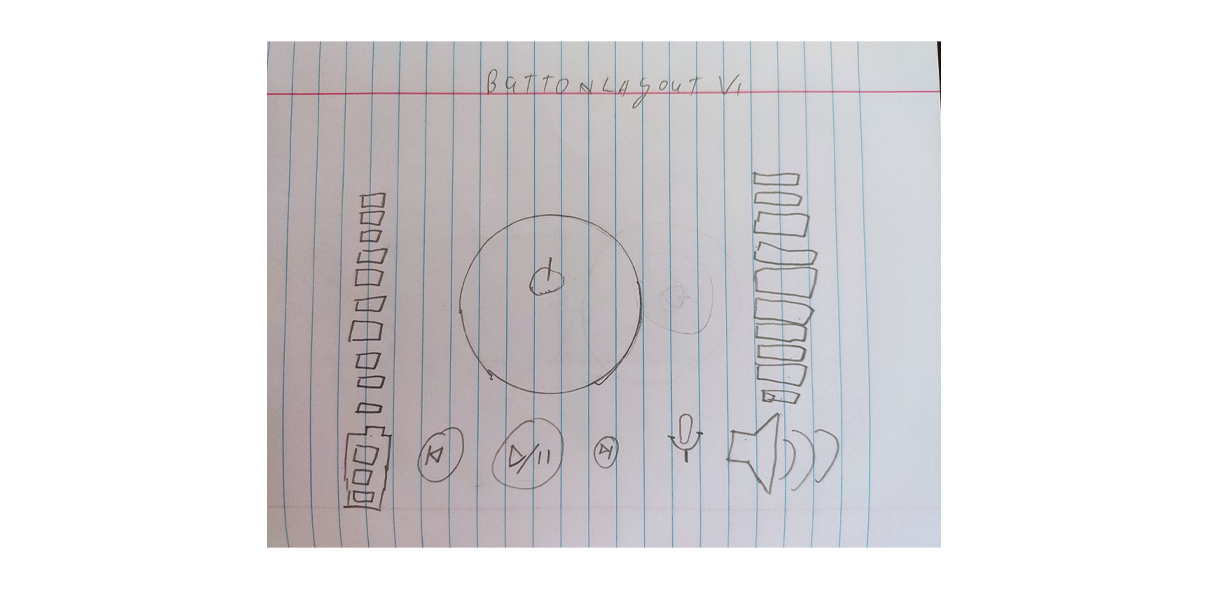 BUTTON LAYOUT V1